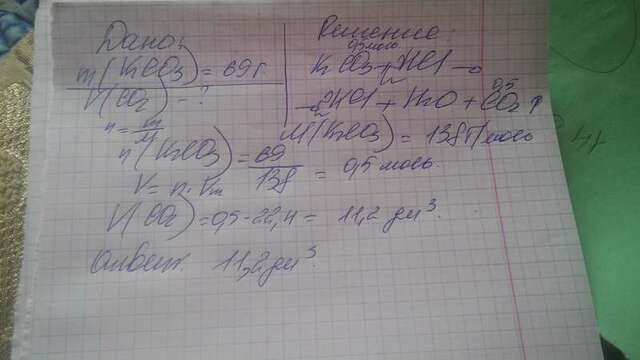 Дано:
m(K2CO3) = 69 г.
V(CO2) - ?
n = m/M
Решение:
0,5 моль
K2CO3 + 2HCl →
0,5
→ 2KCl + H2O + CO2 ↑
M(K2CO3) = 138 г/моль
n(K2CO3) = 69/138 = 0,5 моль.
V = n · Vm
V(CO2) = 0,5 · 22,4 = 11,2 дм³.
Ответ: 11,2 дм³.